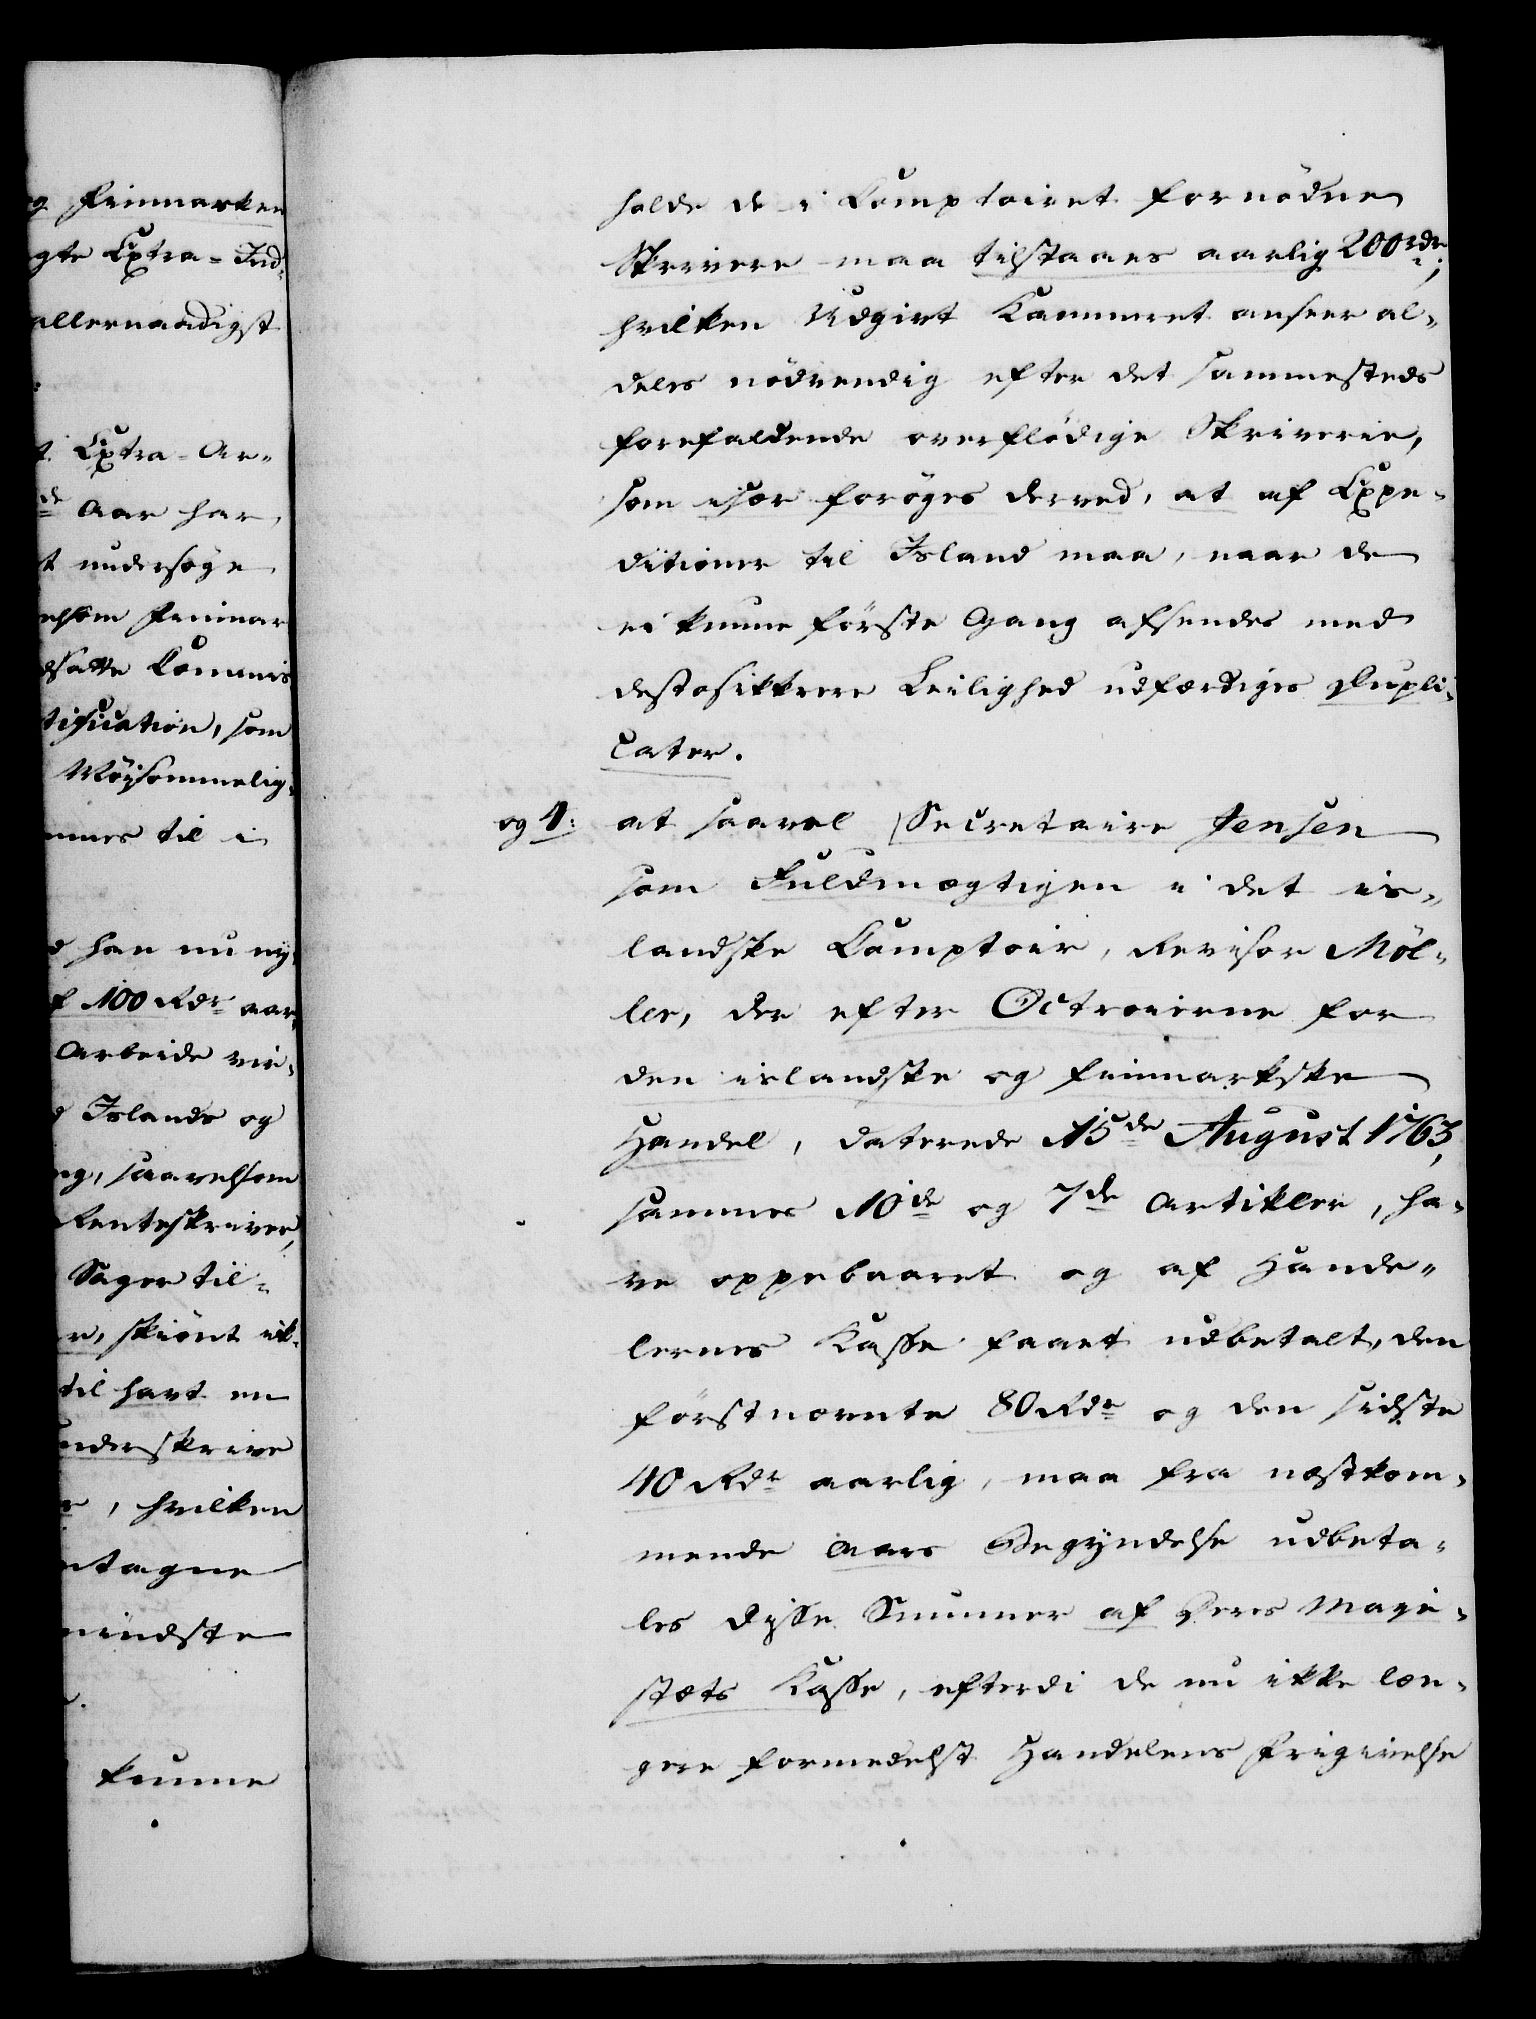 g Finmarken
gte Extra-Ind-
allernaadigst
t Extra-Ar-
de Aar har,
t undersøge
elsom Finmar
dsatte Commis
tification, som
Møisommelig-
mmes til i
d han nu ny-
f 100 Rdr aar-
Arbeide vir-
d Islands og
ng, saavelsom
Renteskriver,
Sager til-
r, skiönt ik-
til havt en
underskrive
, hvilken
ntagne
mindste
kunne
holde de i Comptoiret fornödne
Skrivere maa tilstaaes aarlig 200 rdr;
hvilken Udgivt Kammeret anseer al-
deles nödvendig efter det sammesteds
forefaldende overflödige Skriverie,
som især foröges derved, at af Expe-
ditioner til Island maa, naar de
ei kunne förste Gang afsendes med
destosikkrere Leilighed udfærdiges Dupli-
cater.
og 4: at saavel Secretaire Jensen
som Fuldmægtigen i det is-
landske Comptoir, Revisor Möl-
ler, der efter Octroierne for
den islandske og finmarkske
Handel, daterede 15de August 1763,
sammes 10de og 7de Artikler, ha-
ve oppebaaret og af Hande-
lernes Kasse faaet udbetalt, den
förstnævnte 80 Rdr og den sidste
40 Rdr aarlig, maa fra næstkom-
mende Aars Begyndelse udbeta-
les disse Summer af Deres Maje-
stæts Kasse, efterdi de nu ikke læn-
gere formedelst Handelens Frigivelse